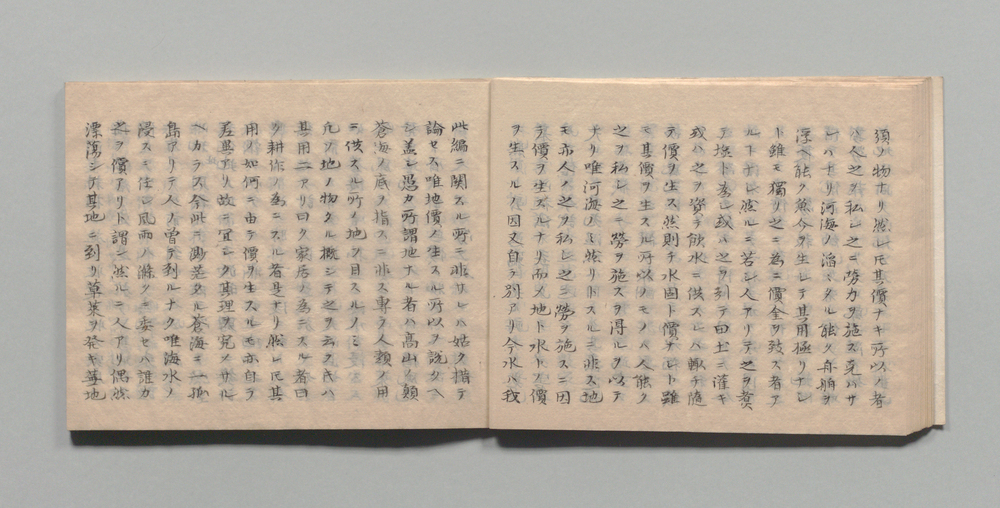 須ノ物ナリ然レ𪜈其價ナキ所以ノ者
ハ人之ヲ私シ之ニ勞力ヲ施ス克ハサ
レハナリ河海ノ滔々タル能ク舟舶ヲ
浮ヘ能ク魚介ヲ生シテ其用極リナシ
ト雖モ獨リ之ニ為ニ價金ヲ致ス者ア
ルナシ然ルニ若シ人アリテ之ヲ煑
テ塩ト為シ或ハ之ヲ引テ田土ニ灌キ
或ハ之ヲ資テ飲水ニ供スレハ輙チ随
テ價ヲ生ス然則チ水固ト價ナシト雖
モ其價ヲ生スル所以ノモノハ人能ク
之ヲ私シ之ニ勞ヲ施スヲ得ルヲ以テ
ナリ唯河海ノミ然リトスルニ非ス地
モ亦人ノ之ヲ私シ之ニ勞ヲ施スニ因
テ價ヲ生スルナリ而メ地ト水トノ價
ヲ生スルノ因又自ラ別アリ今水ハ我
此編ニ関スル所ニ非サレハ姑ク措テ
論セス唯地價ノ生スル所以ヲ説クヘ
シ蓋シ愚カ所謂地ナル者ハ高山ノ顛
蒼海ノ底ノ指スニ非ス専ラ人類ノ用
ニ供スル所ノ地ヲ目スルノミ
凡ソ地ノ物タル概シテ之ヲ云ヘハ
其用二アリ曰ク家居ノ為ニスル者曰
ク耕作ノ為ニスル者是ナリ然レ𪜈其
用ノ如何ニ由テ價ヲ生スルモ亦自ラ
差異アリ故ニ宜シク其理ヲ究メサル
ヘカラス今此ニ渺茫タル蒼海ニ一孤
島アリテ人ノ曽テ到ルナク唯海水ノ
浸スニ任シ風雨ノ滌クニ委セハ誰カ
之ヲ價アリト謂ン然ルニ人アリ偶然
漂蕩シテ其地ニ到リ草萊ヲ発キ蕪地